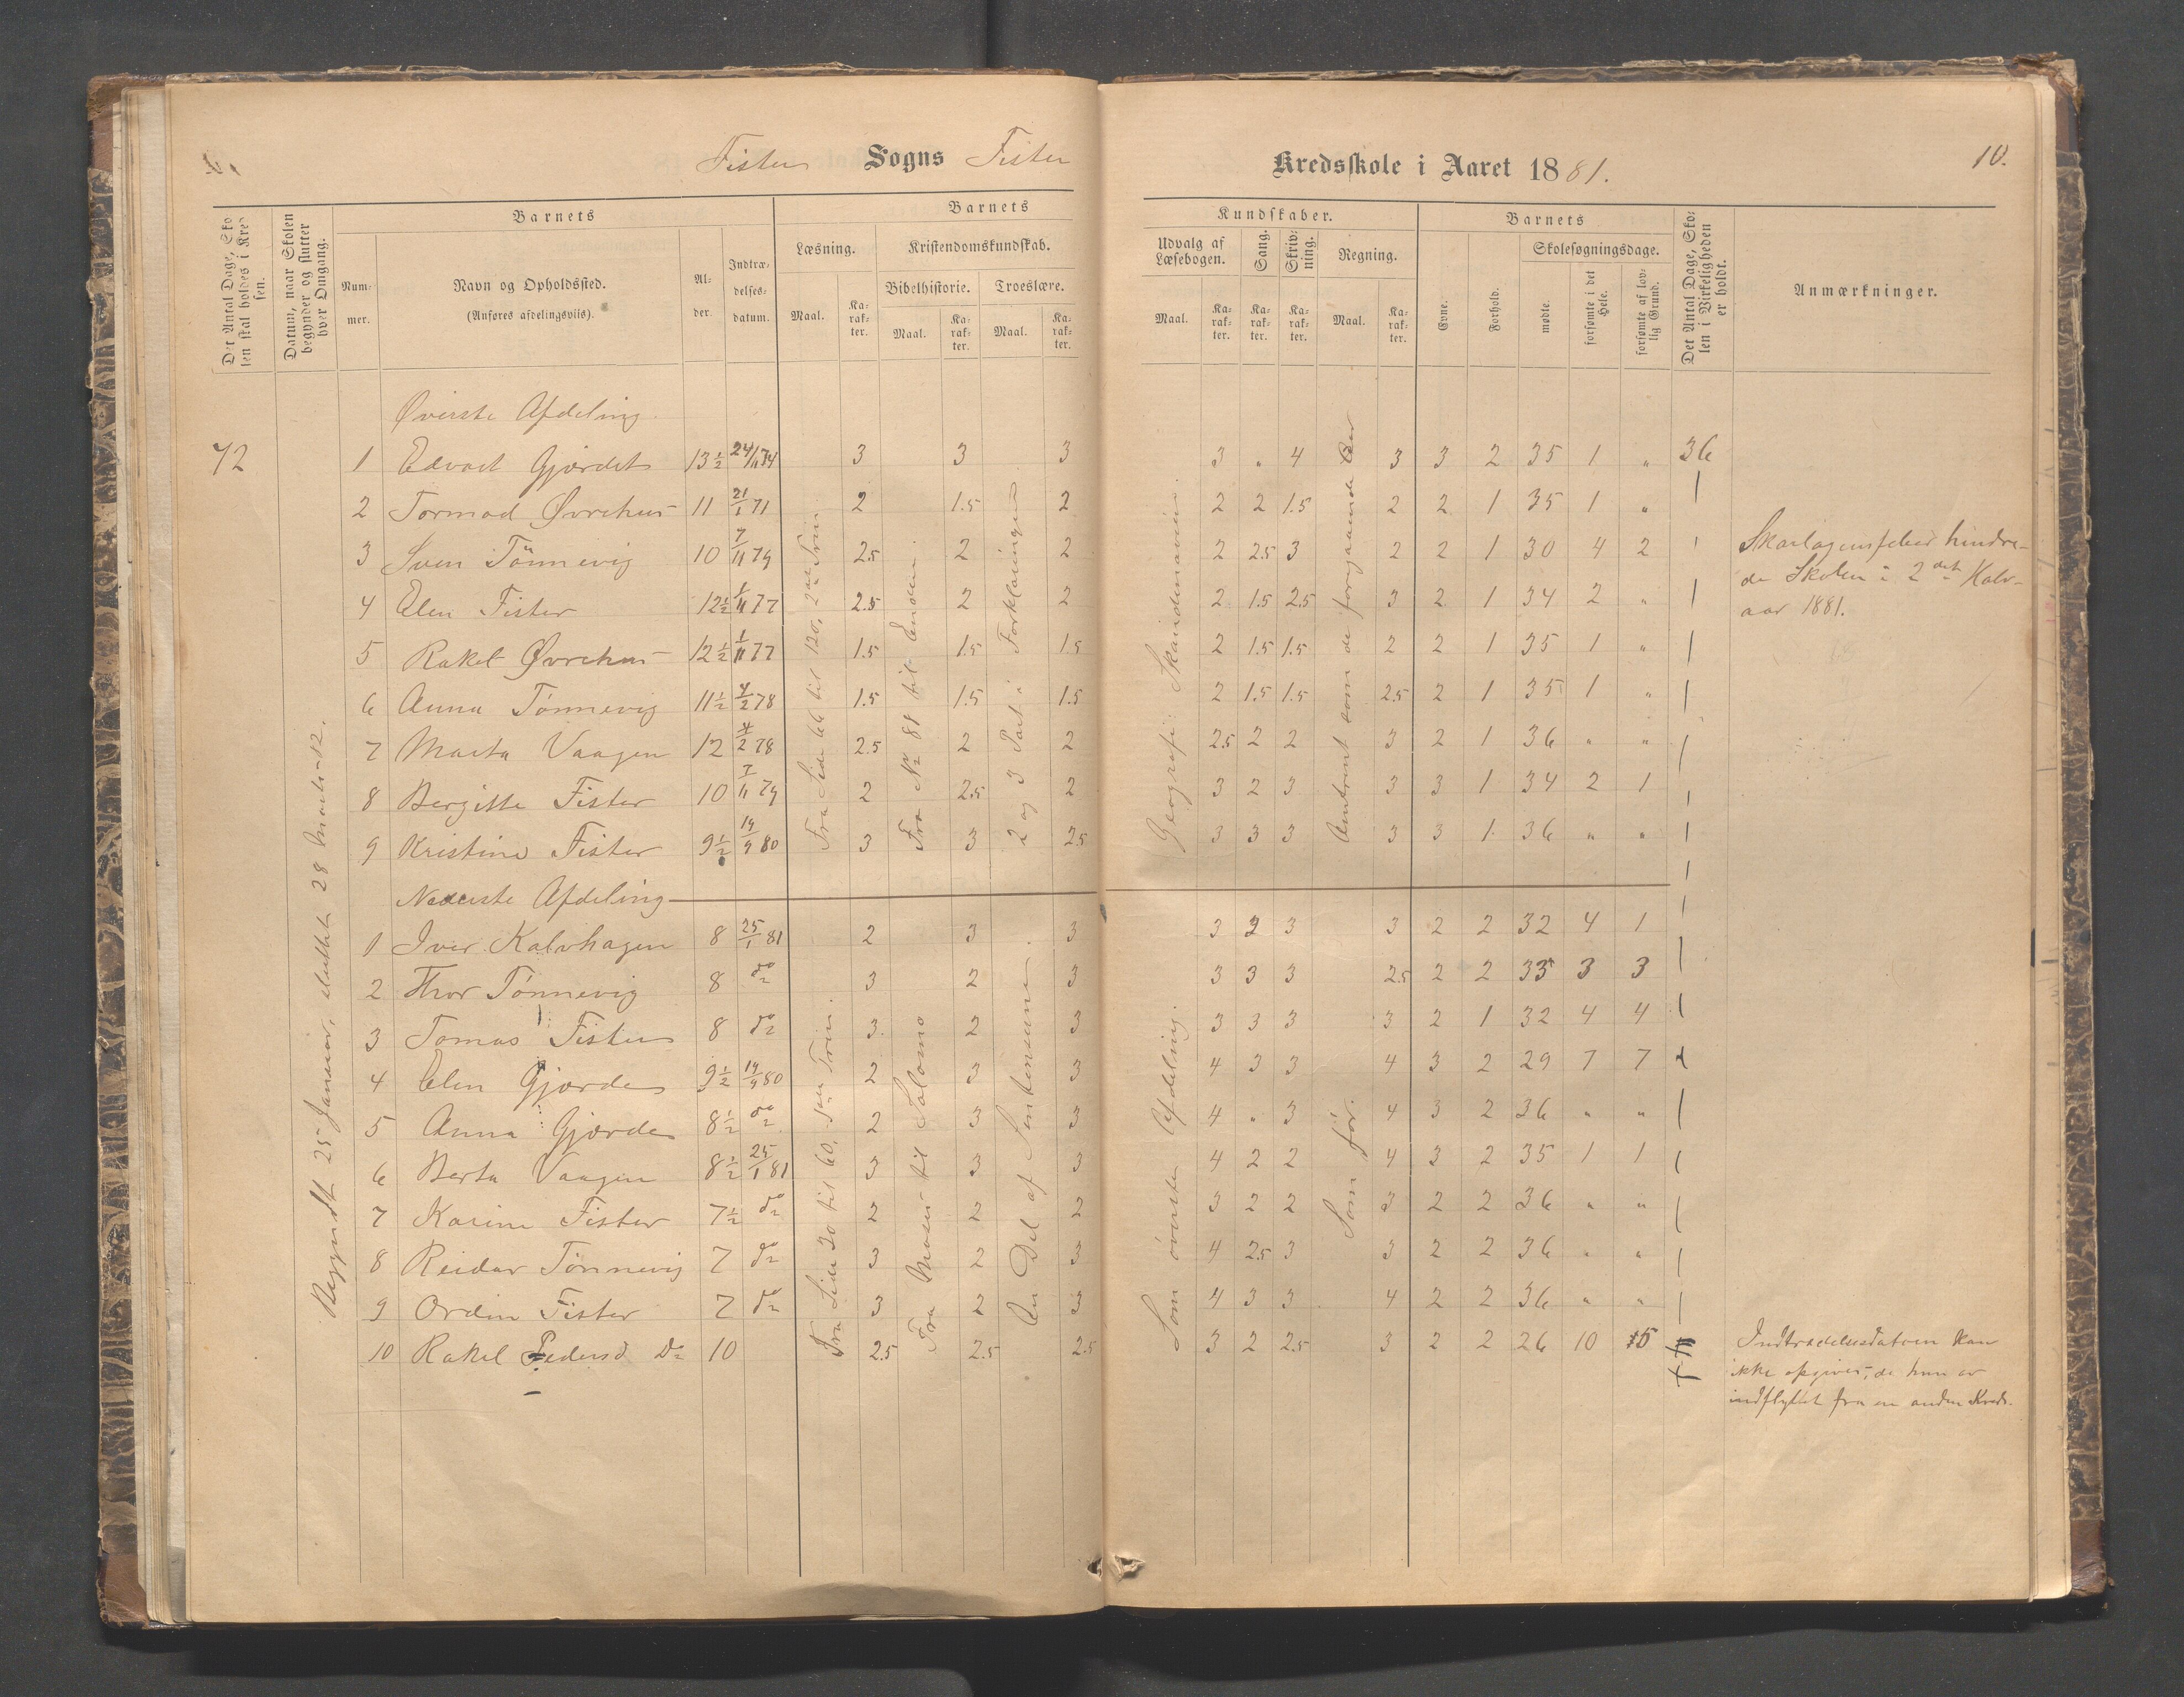 Fister Sogns Fister Kredsskole i Aaret 1881. 10.
Det Antal Dage, Skolen skal holdes i Kredsen.
Datum, naar Skolen begynder og slutter hver Omgang.
Barnets
Nummer.
Navn og Opholdssted.
(Anføres afdelingsviis).
Alder.
Indtrædelsesdatum.
Barnets Kundskaber.
Læsning.
Maal. Karakter.
Kristendomskundskab.
Bibelhistorie. Troeslære.
Maal. Karakter. Maal. Karakter.
Udvalg af Læsebogen.
Maal. Karakter.
Sang.
Karakter.
Skrivning.
Karakter.
Regning.
Maal. Karakter.
Barnets
Evne. Forhold.
Skolesøgningsdage.
mødte. forsømte i det Hele. forsømte af lovlig Grund.
Det Antal Dage, Skolen i Virkeligheden er holdt.
Anmærkninger.
Øverste Afdeling
72 1 Edvard Gjerdet 13½ 24/11 74 3 3 3 3 " 4 3 3 2 35 1 " 36
2 Tormod Øvrehus 11 21/1 71 2 1.5 2 2 2 1.5 2 2 1 35 1 "
3 Sven Tönnevig 10 7/11 79 2.5 2 2 2 2.5 3 2 2 1 30 4 2
4 Elen Fister 12½ 1/11 77 2.5 2 2 2 1.5 2.5 3 2 1 34 2 "
5 Rakel Øvrehus 12½ 1/11 77 1.5 1.5 1.5 2 1.5 1.5 2 2 1 35 1 "
6 Anna Tönnevig 11½ 4/2 78 1.5 1.5 1.5 2 1.5 1.5 2.5 2 1 35 1 "
7 Marta Vaagen 12 4/2 78 2.5 2 2 2.5 2 2 3 2 1 36 " "
8 Bergitte Fister 10 7/11 79 2 2.5 2 3 2 3 3 3 1 34 2 1
9 Kristine Fister 9½ 14/9 80 3 3 2.5 3 3 3 3 3 1 36 " "
Fra Side 66 til 120, 2det Trin.
Fra No 81 til Enden.
2 og 3 Part i Forklaringen
Geografi: Skandinavien.
Omtrent som de foregaaende Aar
Skarlagensfeber hindre-
de Skolen i 2det Halv-
aar 1881.
Begyndt 25 Januar, sluttet 28 Marts 12.
Nederste Afdeling
1 Iver Kalvhagen 8 25/1 81 2 3 3 3 2 3 3 2 2 32 4 1
2 Thor Tönnevig 8 do 3 2 3 3 3 3 2.5 2 2 33 3 3
3 Tomas Fister 8 do 3 2 3 3 3 3 3 2 1 32 4 4
4 Elen Gjerde 9½ 14/9 80 2 3 3 4 3 3 4 3 2 29 7 7
5 Anna Gjerde 8½ do 2 3 3 4 " 3 4 3 2 36 " "
6 Berta Vaagen 8½ 25/1 81 3 3 3 4 2 2 4 3 2 35 1 1
7 Karine Fister 7½ do 2 2 2 3 2 2 3 2 2 36 " "
8 Reidar Tönnevig 7 do 3 2 3 4 2.5 3 3 2 2 36 " "
9 Ordin Fister 7 do 3 2 3 4 3 3 4 2 2 36 " "
10 Rakel Pedersd do 10 2.5 2.5 2.5 3 2 2.5 3 2 2 26 10 5
Fra Side 20 til 60, 1ste Trin.
Fra Moses til Salomo
En Del af Sentenserne.
Som øverste Afdeling.
Som før.
Indtrædelsesdatoen kan
ikke opgives, da hun er
indflyttet fra en anden Kreds.